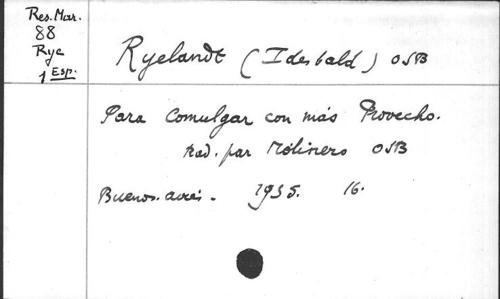 Res. Mar.
88
Rye
1 Esp.
Ryelandt (Idesbald) OSB
Para Comulgar con más Provecho.
trad. par Moliners OSB
Buenos-aires. 1935. 16.